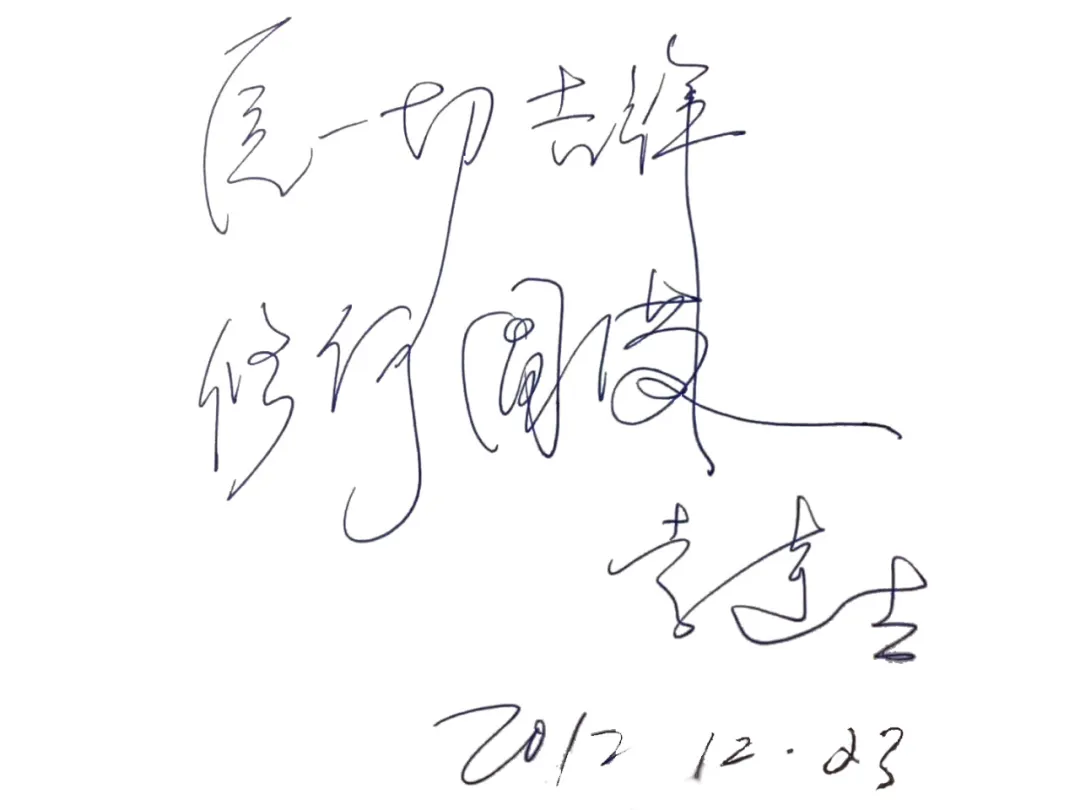 愿一切吉祥
修行圆满
生
2012 12.23